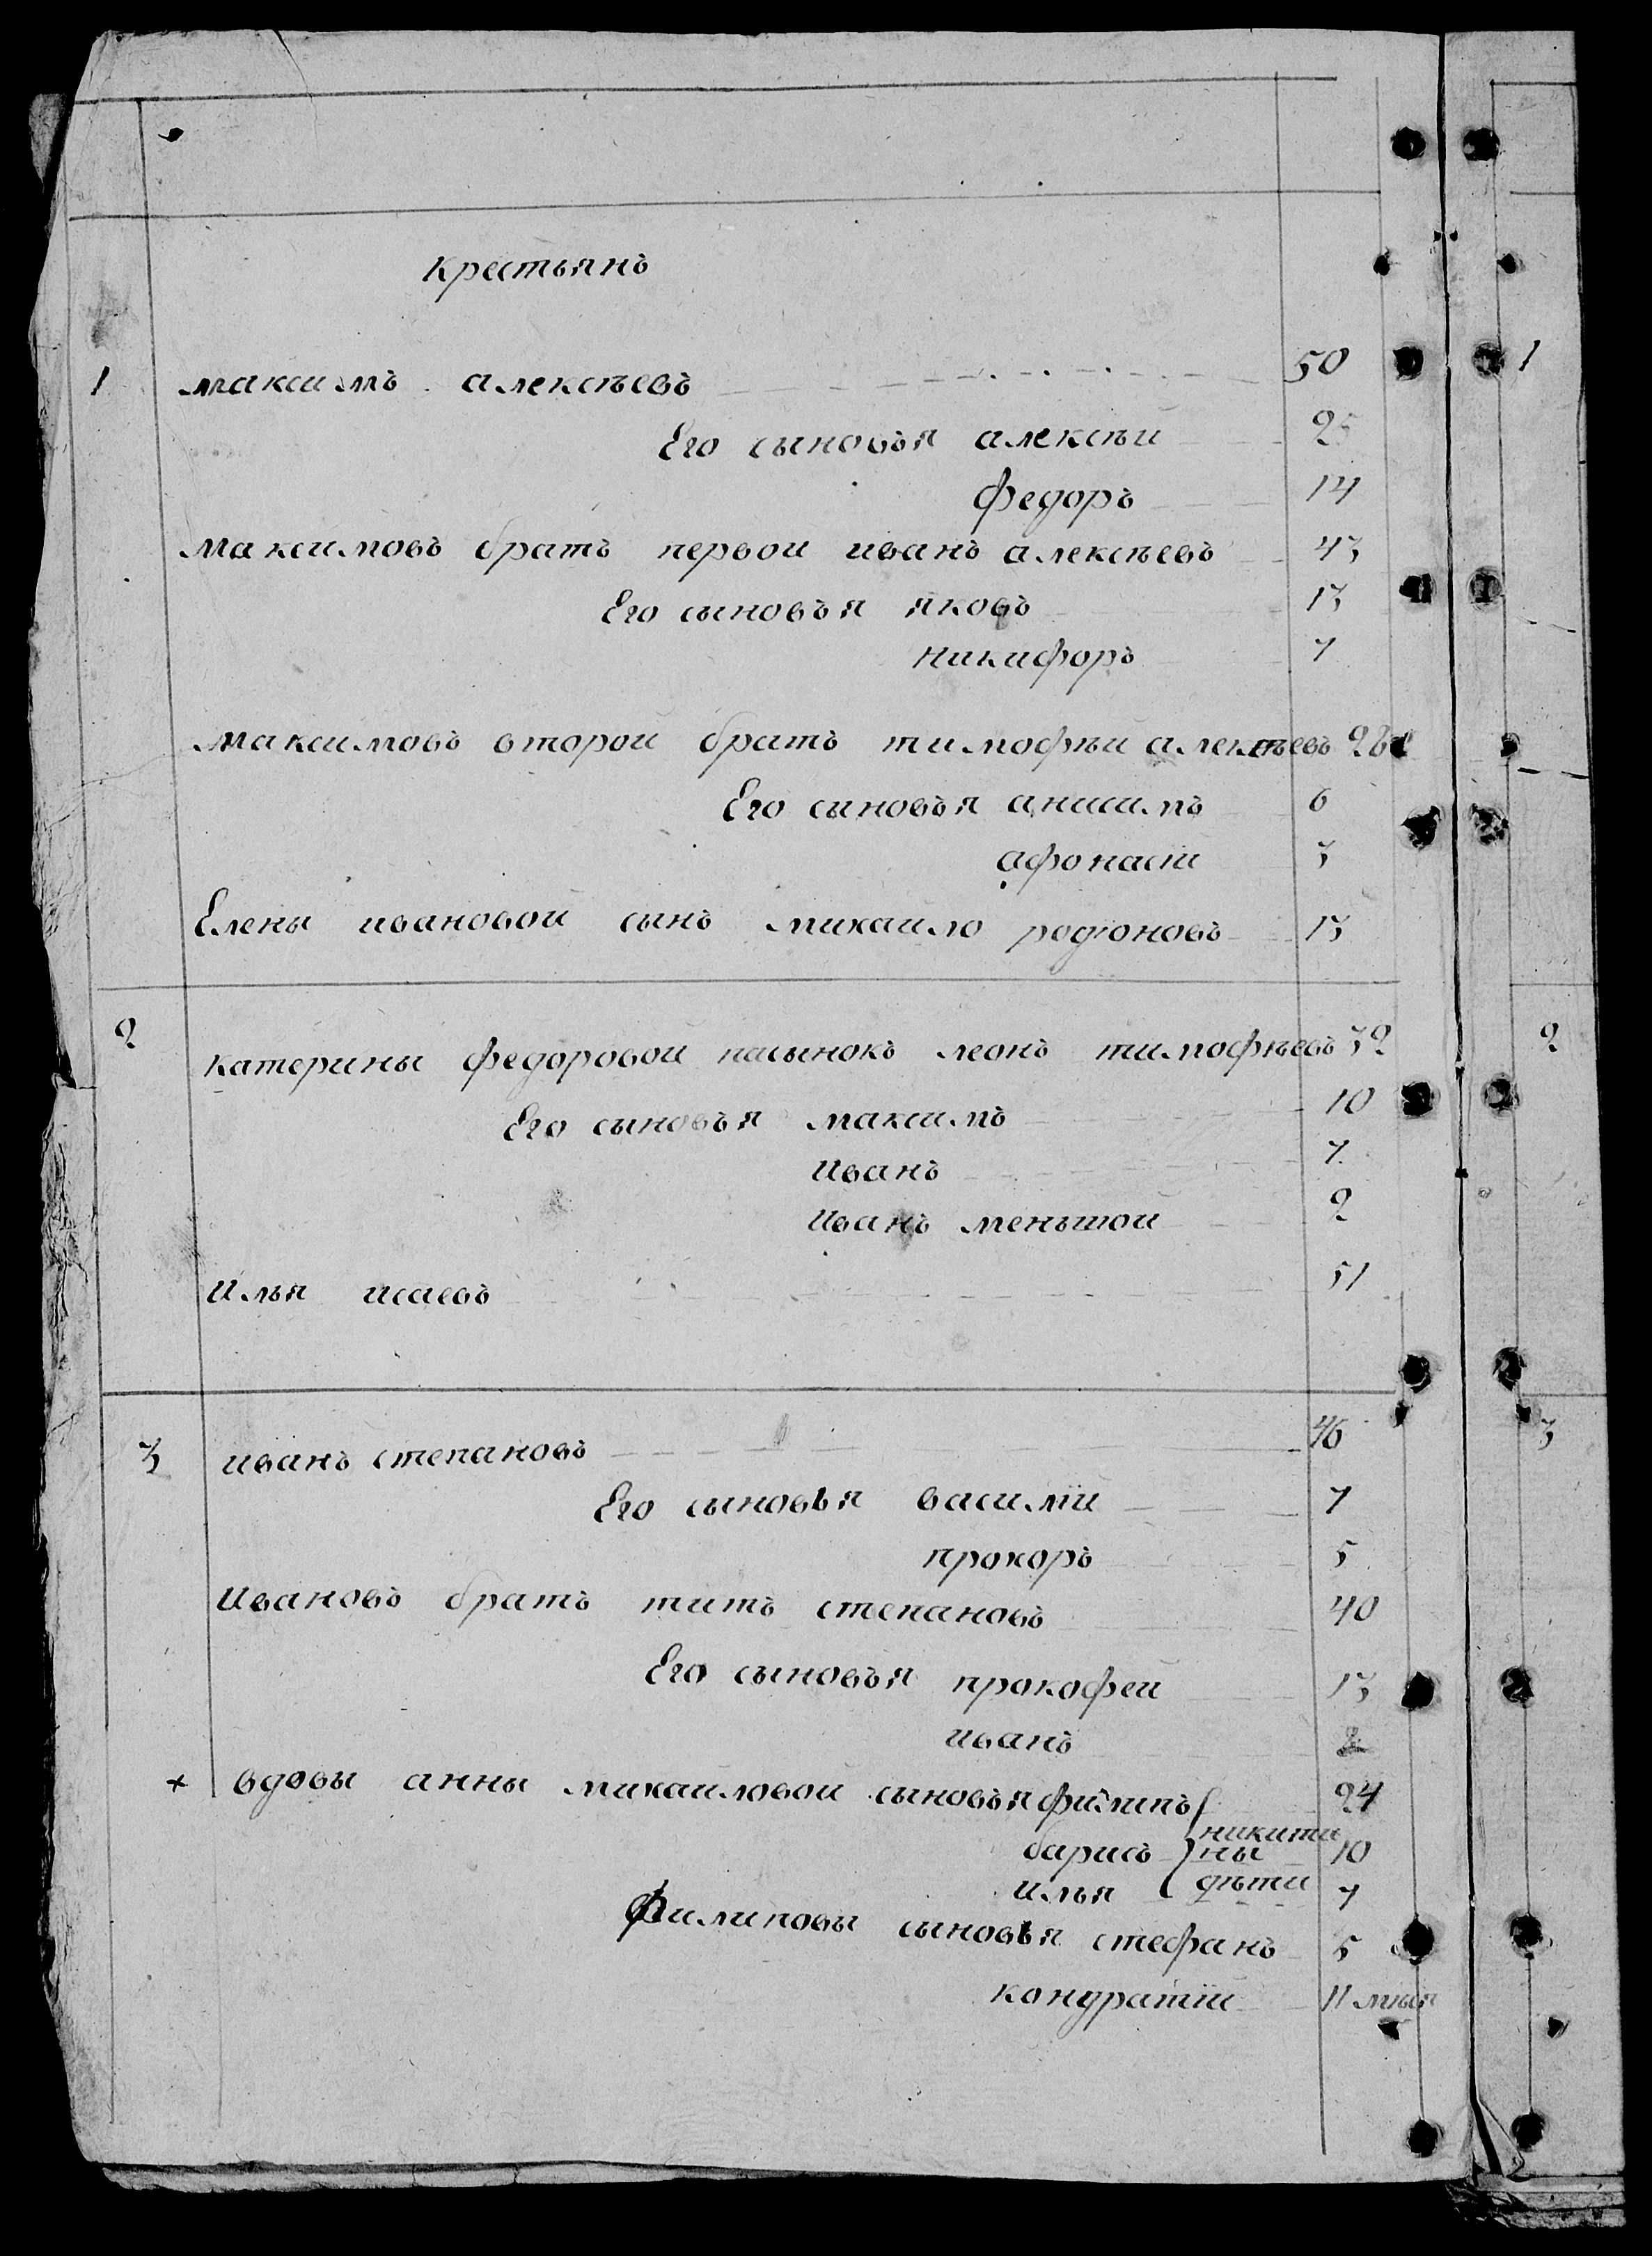 крестьянъ
1 максимъ алексѣевъ 50 1
Его сыновья алексѣи 25
федоръ 14
максимовъ братъ первои иванъ алексѣевъ 43
Его сыновья яковъ 13
никифоръ 7
максимовъ второи братъ тимофѣи алексѣевъ
Его сыновья анисимъ 6
афонаси 3
Елены ивановои сынъ михаило родіоновъ 13
2 катерины федоровои пасынокъ леонъ тимофѣевъ 32 2
Его сыновья максимъ 10
иванъ 7
иванъ меньшои 2
илья исаевъ 51
3 иванъ степановъ 46 3
Его сыновья василіи 7
прохоръ 5
ивановъ братъ титъ степановъ 40
Его сыновья прокофеи 13
иванъ 2
+ вдовы анны михаиловои сыновья филипъ 24
никити
барисъ ны 10
илья дѣти 7
Филиповы сыновья стефанъ 5
кондратіи 11